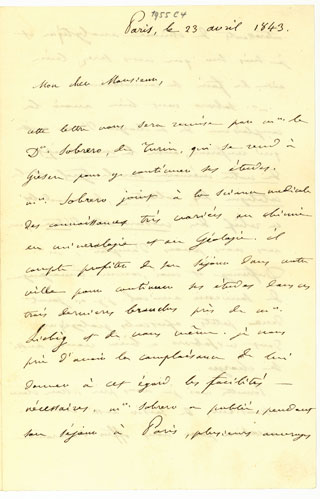 1955 C4
Paris, le 23 avril 1843.
Mon cher Monsieur,
cette lettre vous sera remise par mr. le
Dr. Sobrero, de Turin, qui se rend à
Giesen pour y continuer ses études.
mr. Sobrero joint à la science médicale
des connaissances très variées en chimie
en minéralogie et en Géologie. il
compte profiter de son séjour dans votre
ville pour continuer ses études dans ces
trois dernieres branches près de mr.
Liebig et de vous même. je vous
prie d'avoir la complaisance de lui
donner à cet égard les facilités —
nécessaires. mr. Sobrero a publié, pendant
son séjour à Paris, plusieurs ouvrages